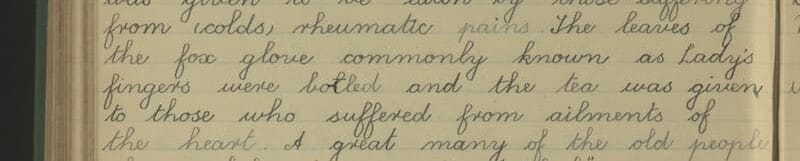 was given to be eaten by those suffering
from colds, rheumatic pains. The leaves of
the fox glove commonly known as Lady's
fingers were botled and the tea was given
to those who suffered from ailments of
the heart. A great many of the old people